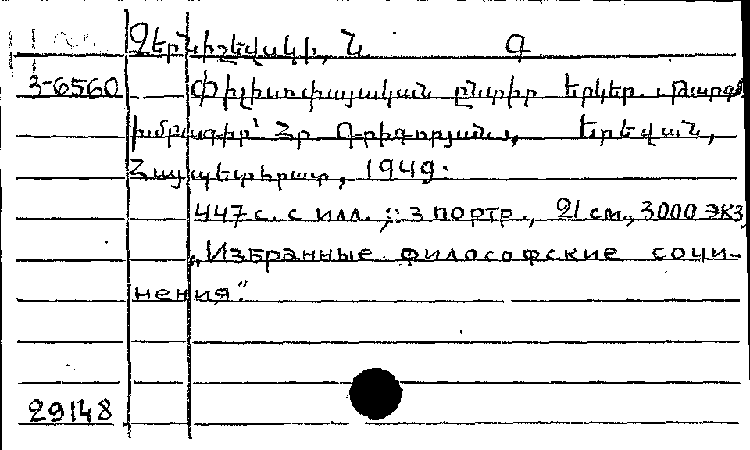 Չերնիշեվսկի, Ն Գ
3-6560 Փիլիսոփայական ընտիր երկեր. Թարգմ
խմբագիր՝ Հր. Գրիգորյան, Երեվան,
Հայպետհրատ, 1949:
447 с. с илл.; 3 портр., 21 см., 3000 экз
„Избранные философские сочи-
нения".
29148